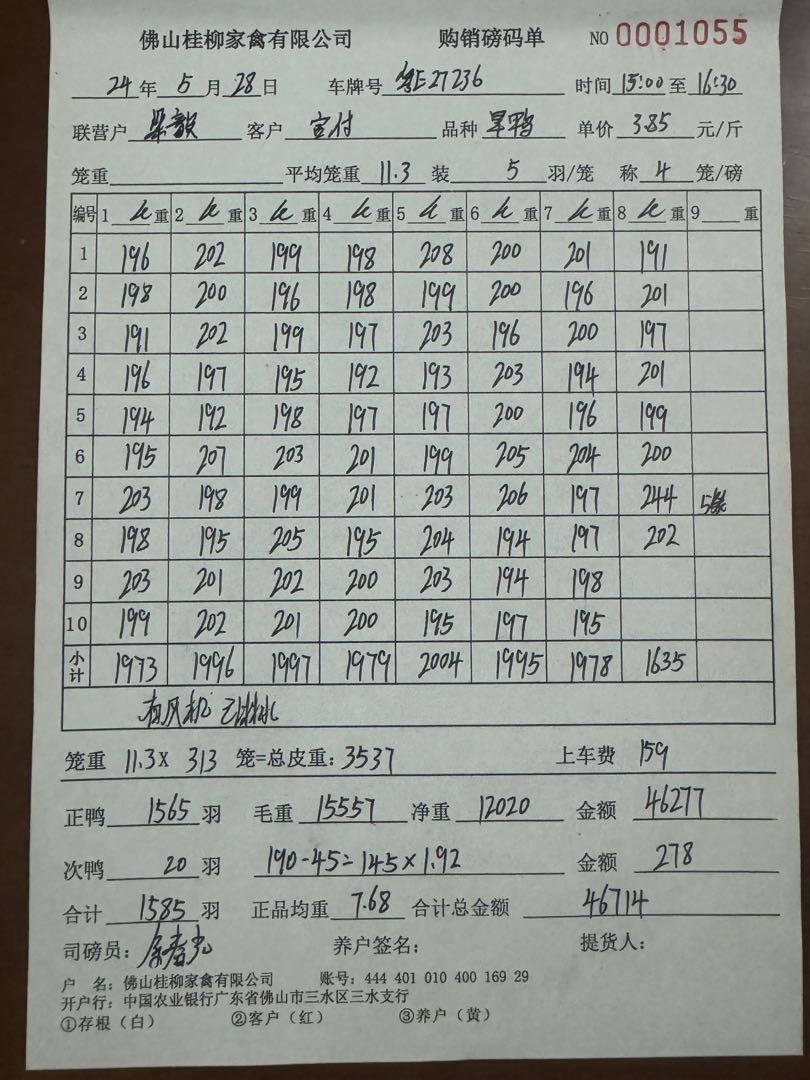 佛山桂柳家禽有限公司 购销磅码单 NO 0001055
24年 5月 28日 车牌号 粤E27236 时间 15:00 至 16:30
联营户 梁毅 客户 宝付 品种 旱鸭 单价 3.85 元/斤
笼重 平均笼重 11.3 装 5 羽/笼 称 4 笼/磅
编号 1 毛重 2 毛重 3 毛重 4 毛重 5 毛重 6 毛重 7 毛重 8 毛重 9 重
1 196 202 199 198 208 200 201 191
2 198 200 196 198 199 200 196 201
3 191 202 199 197 203 196 200 197
4 196 197 195 192 193 203 194 201
5 194 192 198 197 197 200 196 199
6 195 207 203 201 199 205 204 200
7 203 198 199 201 203 206 197 244 5笼
8 198 195 205 195 204 194 197 202
9 203 201 202 200 203 194 198
10 199 202 201 200 195 197 195
小计 1973 1996 1997 1979 2004 1995 1978 1635
有风机
笼重 11.3 X 313 笼=总皮重: 3537 上车费 159
正鸭 1565 羽 毛重 15557 净重 12020 金额 46277
次鸭 20 羽 190-45=145×1.92 金额 278
合计 1585 羽 正品均重 7.68 合计总金额 46714
司磅员: 养户签名: 提货人:
户 名: 佛山桂柳家禽有限公司 账号: 444 401 010 400 169 29
开户行: 中国农业银行广东省佛山市三水区三水支行
①存根(白) ②客户(红) ③养户(黄)